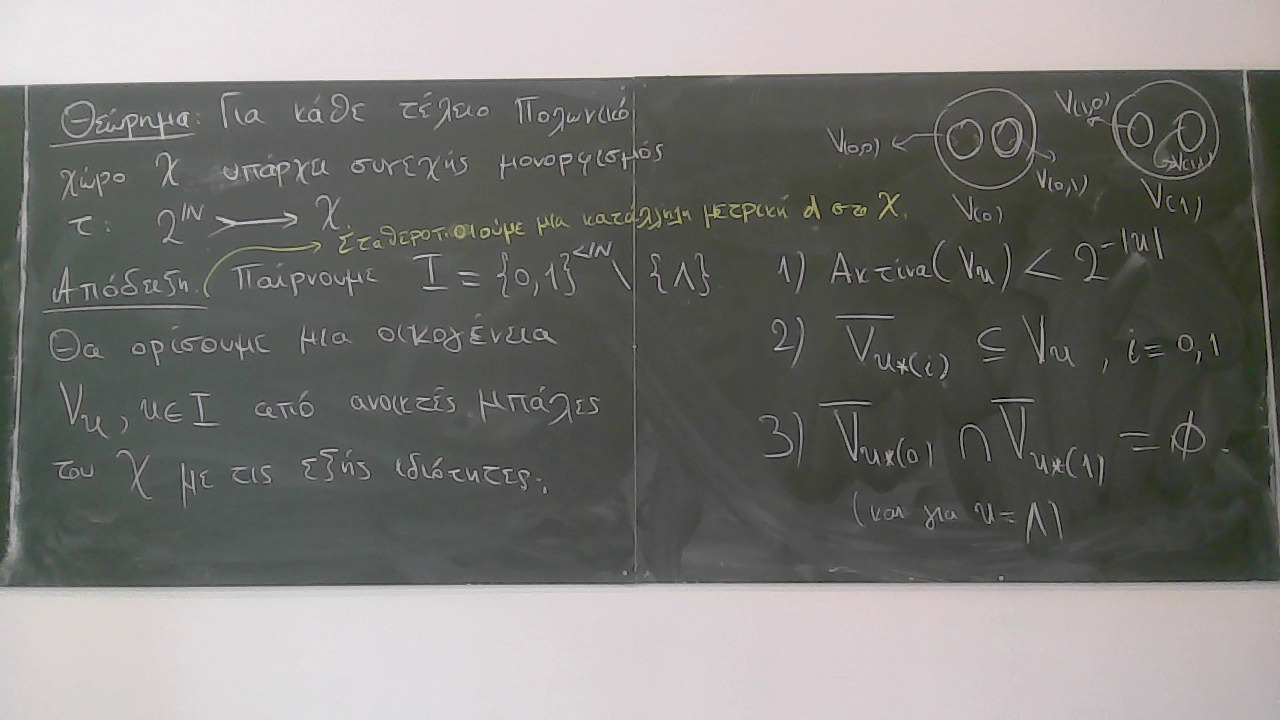 Θεώρημα: Για κάθε τέλειο Πολωνικό
χώρο Χ υπάρχει συνεχής μονορφισμός
τ: 2^ℕ ↣ Χ.
Σταθεροποιούμε μια κατάλληλη μετρική d στο Χ.
Απόδειξη. Παίρνουμε I = {0,1}^{<ℕ} \ {Λ}
Θα ορίσουμε μια οικογένεια
V_u, u ∈ I από ανοικτές μπάλες
του Χ με τις εξής ιδιότητες:
V_(0,0)
V_(0,1)
V_(0)
V_(1,0)
V_(1,1)
V_(1)
1) Ακτίνα(V_u) < 2^{-|u|}
2) \overline{V}_{u*(i)} ⊆ V_u, i=0,1
3) \overline{V}_{u*(0)} ∩ \overline{V}_{u*(1)} = ∅.
(και για u = Λ)